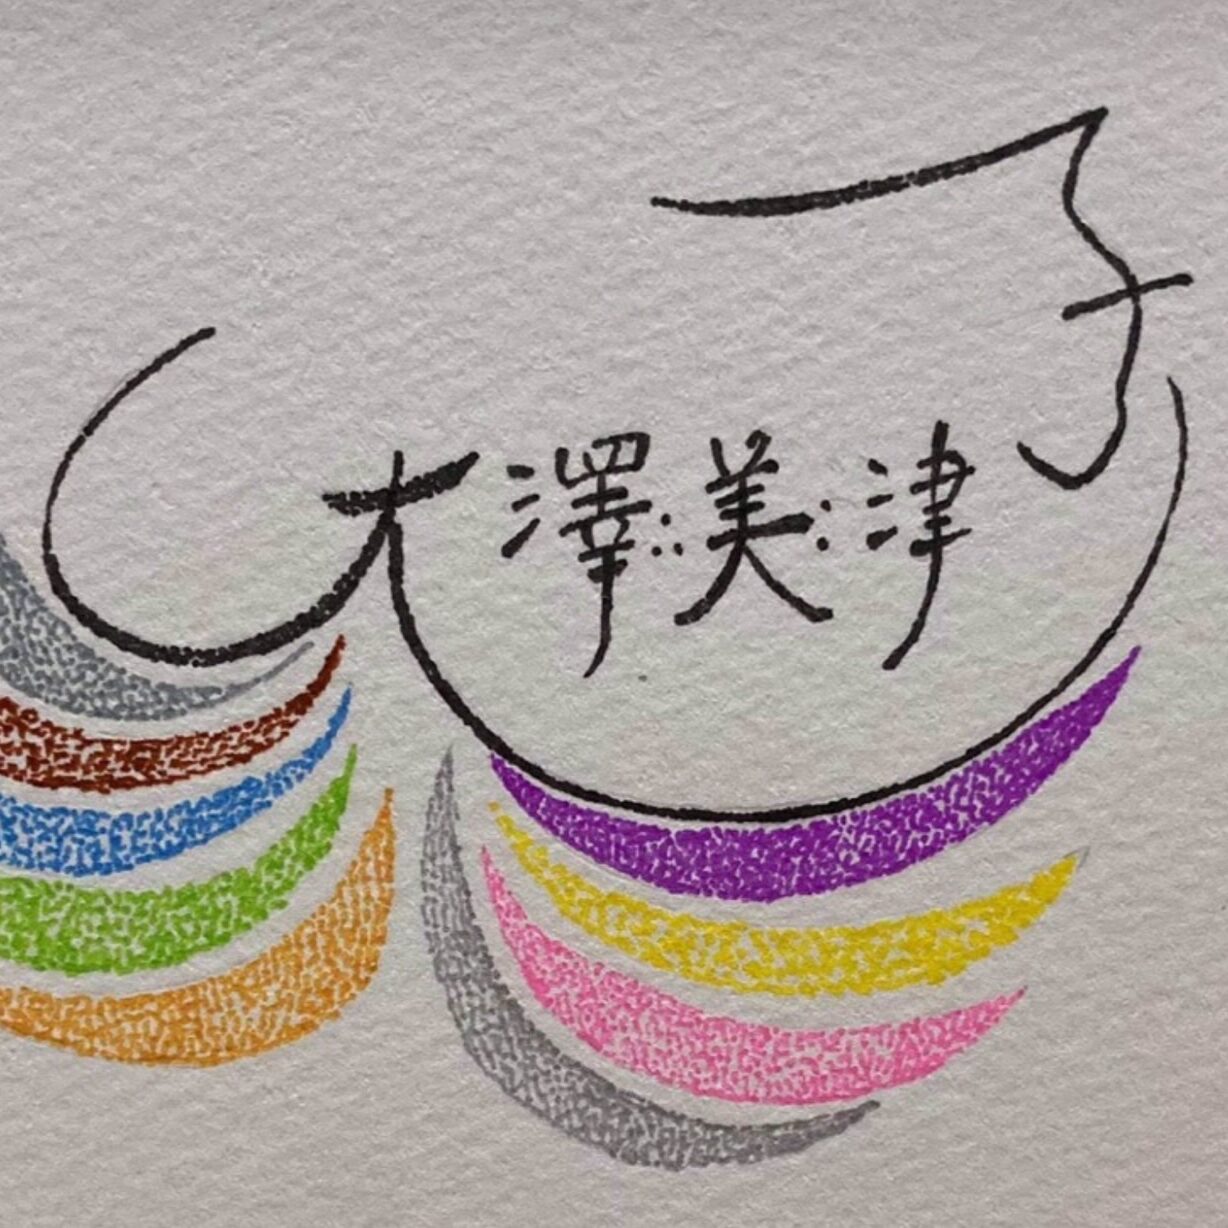 大澤美津子